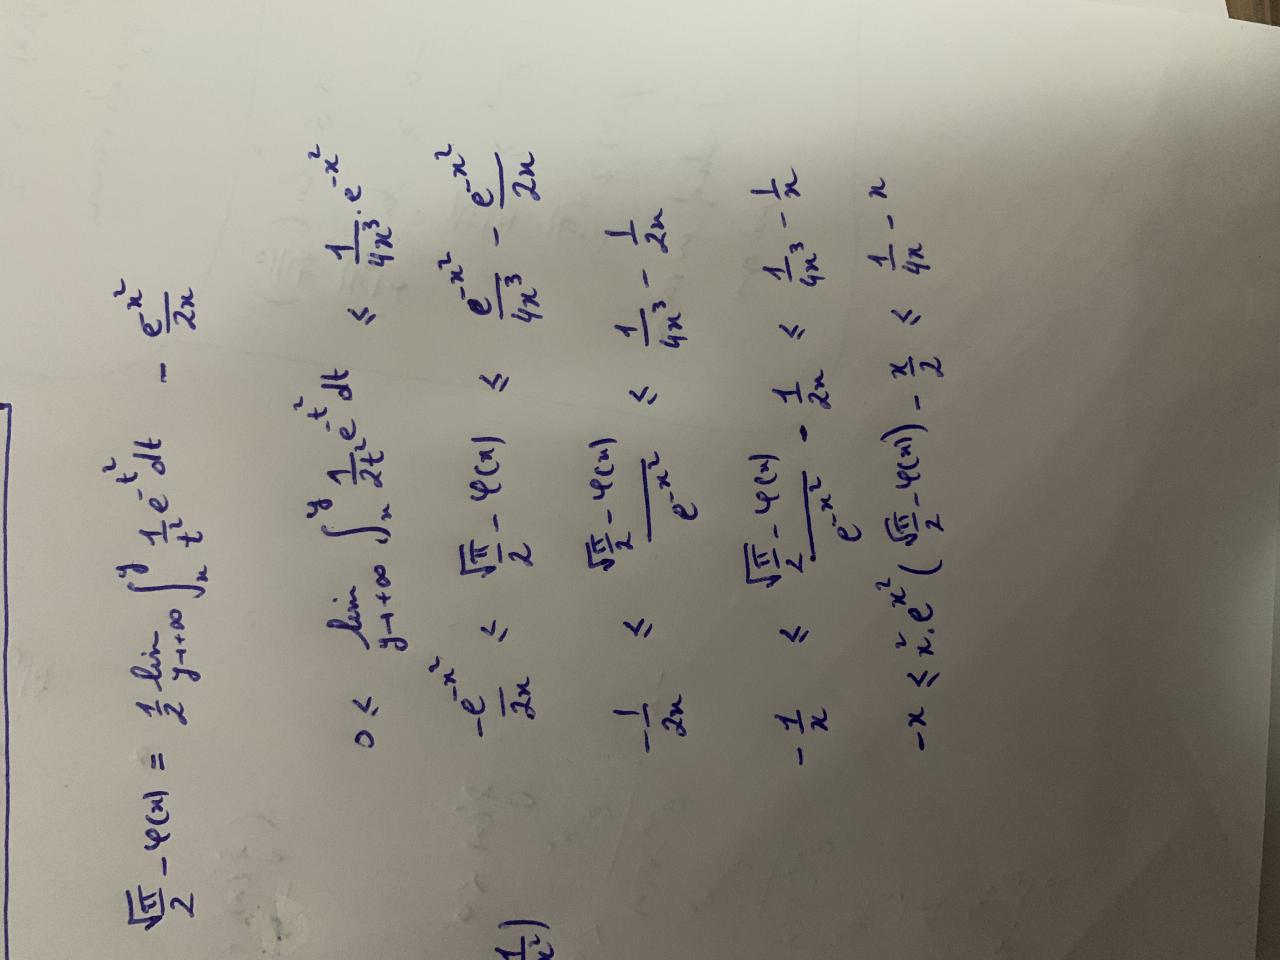 √π/2 - φ(x) = 1/2 lim y→+∞ ∫_x^y 1/t² e^{-t²} dt - e^{-x²}/2x
0 ≤ lim y→+∞ ∫_x^y 1/2t² e^{-t²} dt ≤ 1/4x³ · e^{-x²}
-e^{-x²}/2x ≤ √π/2 - φ(x) ≤ e^{-x²}/4x³ - e^{-x²}/2x
-1/2x ≤ (√π/2 - φ(x))/e^{-x²} ≤ 1/4x³ - 1/2x
-1/x ≤ (√π/2 - φ(x))/e^{-x²} - 1/2x ≤ 1/4x³ - 1/x
-x ≤ x² · e^{x²} (√π/2 - φ(x)) - x/2 ≤ 1/4x - x
1/x²)